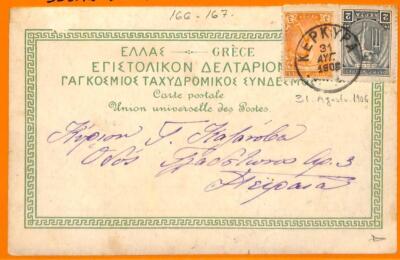 166-167.
ΕΛΛΑΣ GRÈCE
ΕΠΙΣΤΟΛΙΚΟΝ ΔΕΛΤΑΡΙΟΝ
ΠΑΓΚΟΣΜΙΟΣ ΤΑΧΥΔΡΟΜΙΚΟΣ ΣΥΝΔΕΣΜ
Carte postale
Union universelle des Postes.
ΚΕΡΚΥΡΑ
31
ΑΥΓ
1906
2
2
31. Agosto. 1906
Κύριον Γ.
Οδός Γλάδστωνος αρ. 3
Πειραιά